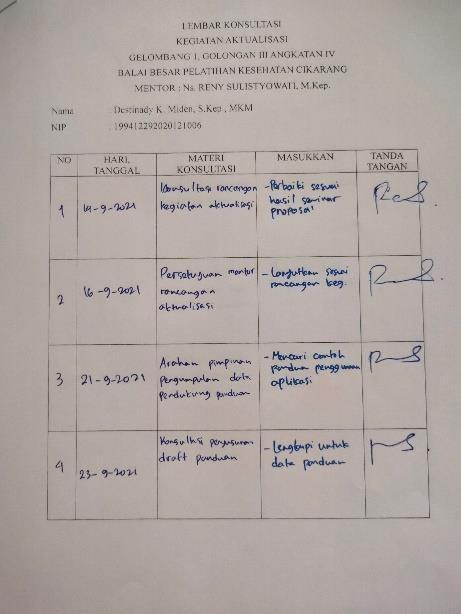 LEMBAR KONSULTASI
KEGIATAN AKTUALISASI
GELOMBANG 1, GOLONGAN III ANGKATAN IV
BALAI BESAR PELATIHAN KESEHATAN CIKARANG
MENTOR : Ns. RENY SULISTYOWATI, M.Kep.
Nama : Destinady K. Miden, S.Kep., MKM
NIP : 199412292020121006
NO HARI, TANGGAL MATERI KONSULTASI MASUKKAN TANDA TANGAN
1 14-9-2021 Konsultasi rancangan kegiatan aktualisasi - Perbaiki sesuai hasil seminar proposal
2 16-9-2021 Persetujuan mentor rancangan aktualisasi - Lanjutkan sesuai rancangan keg.
3 21-9-2021 Arahan pimpinan pengumpulan data pendukung panduan - Mencari contoh panduan penggunaan aplikasi
4 23-9-2021 Konsultasi penyusunan draft panduan - Lengkapi untuk data panduan